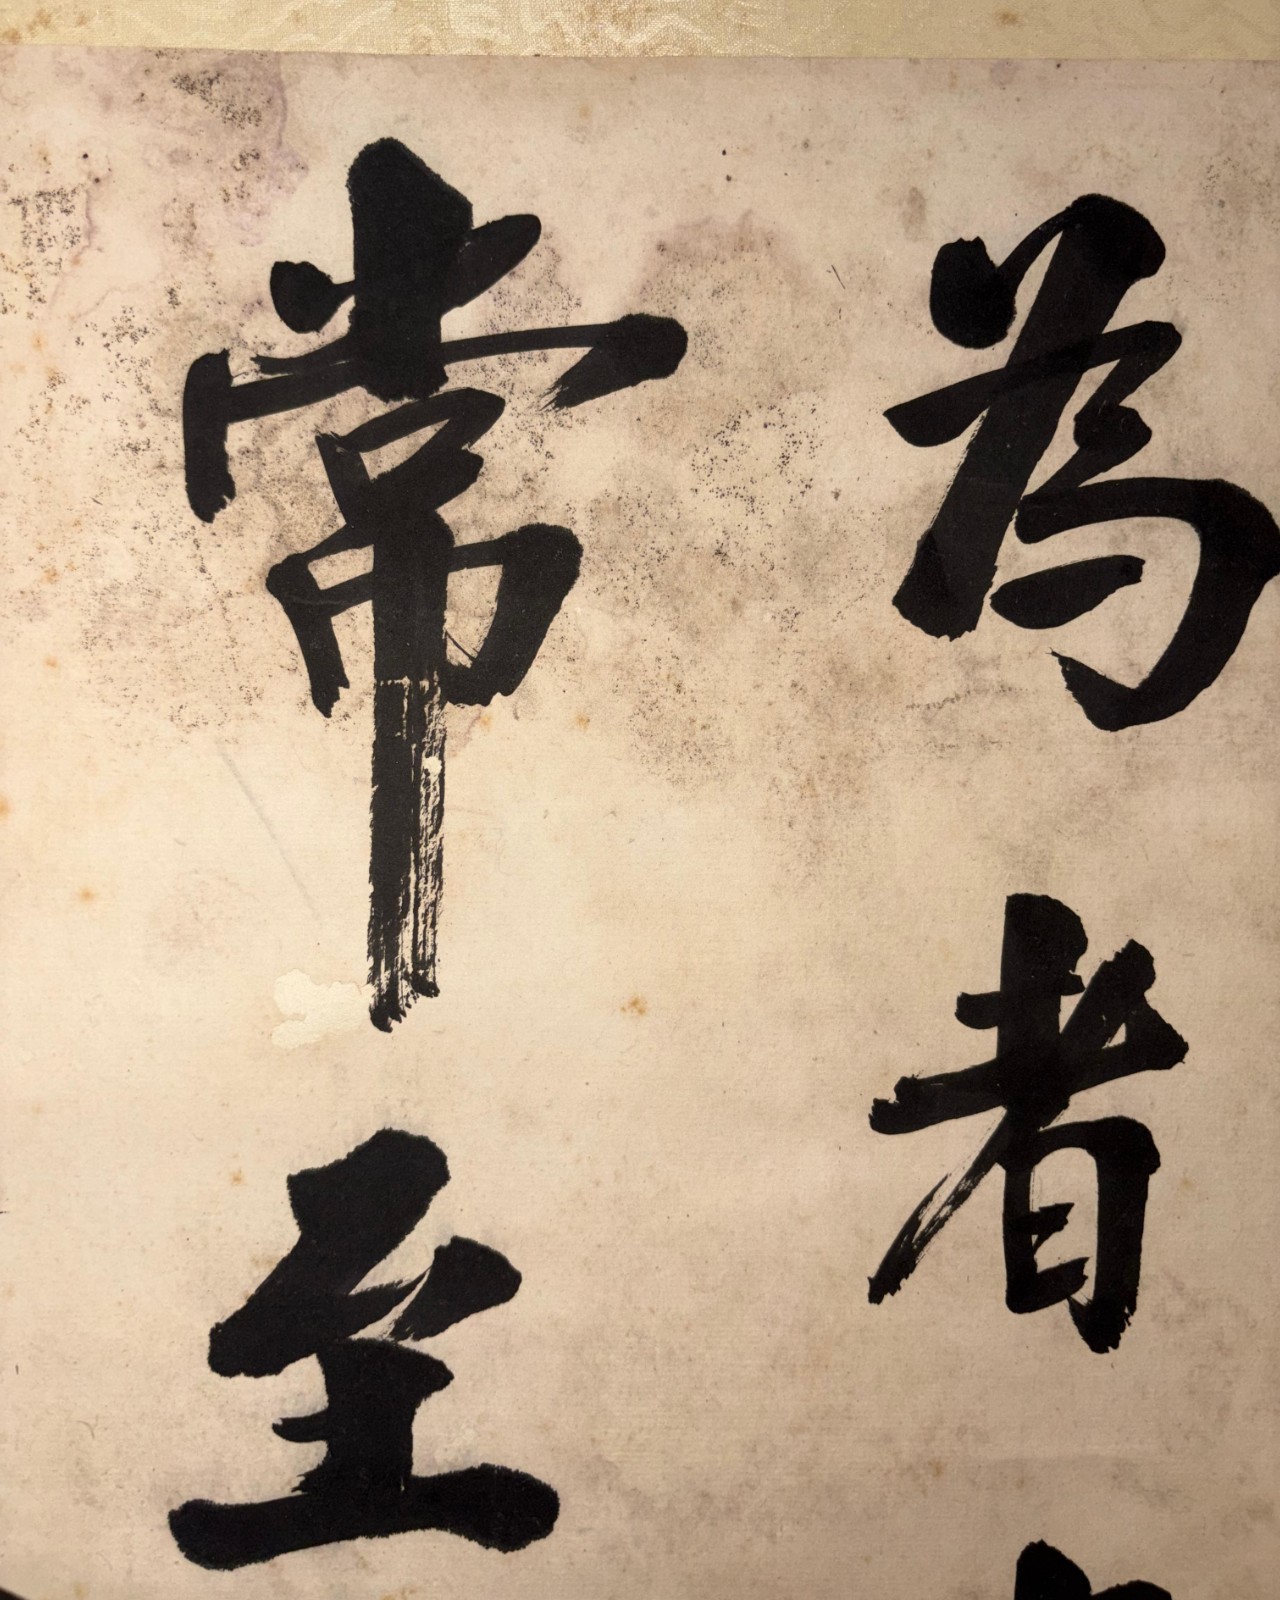 為者
常至